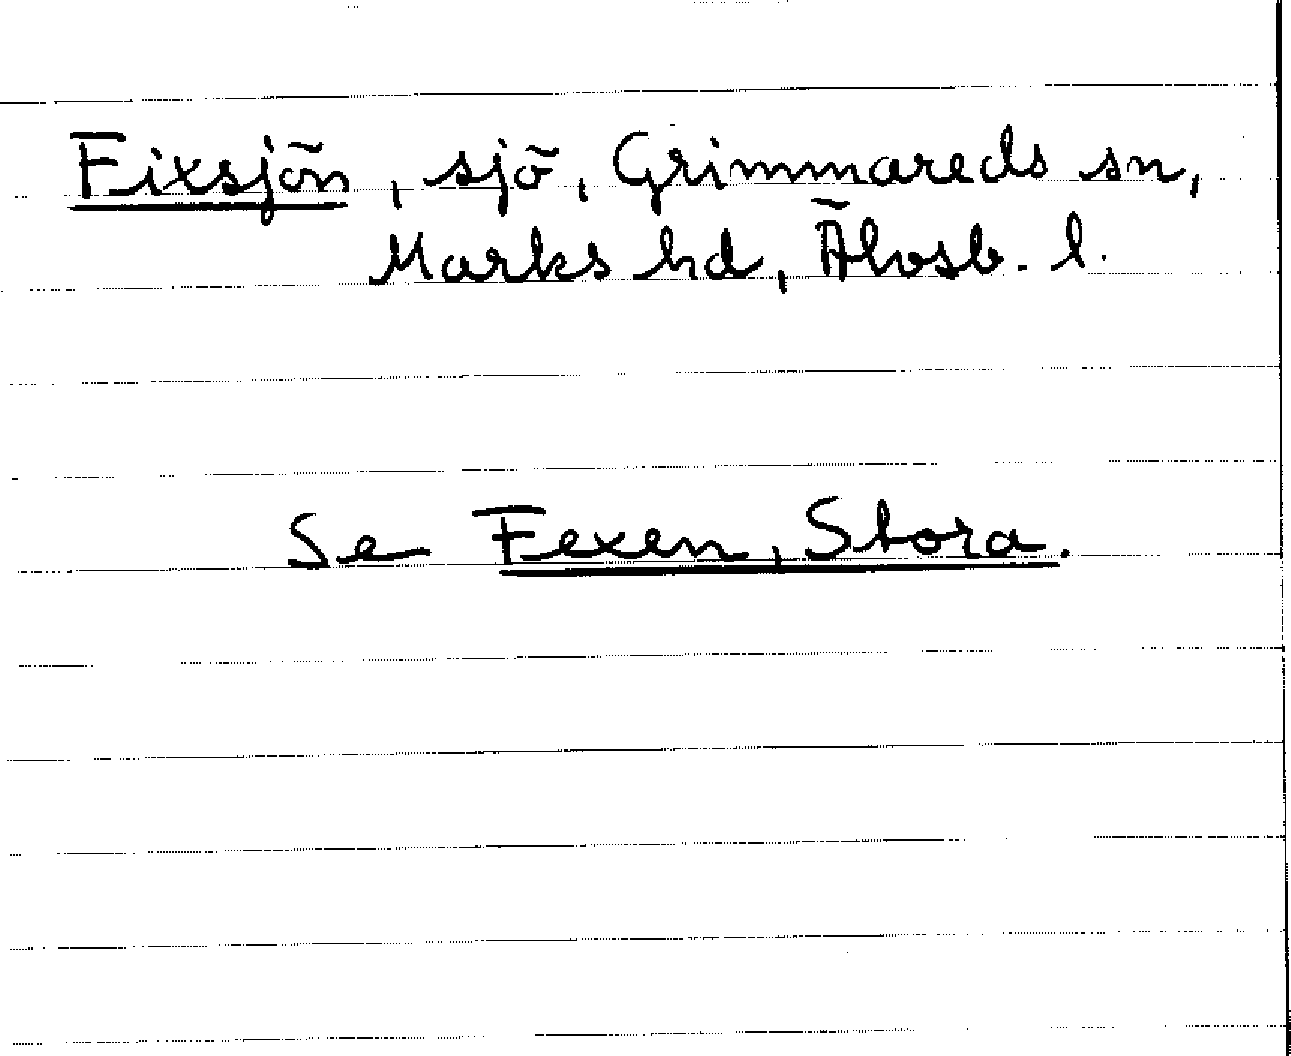 Fixsjön, sjö, Grimmareds sn,
Marks hd, Älvsb. l.
Se Fexen, Stora.